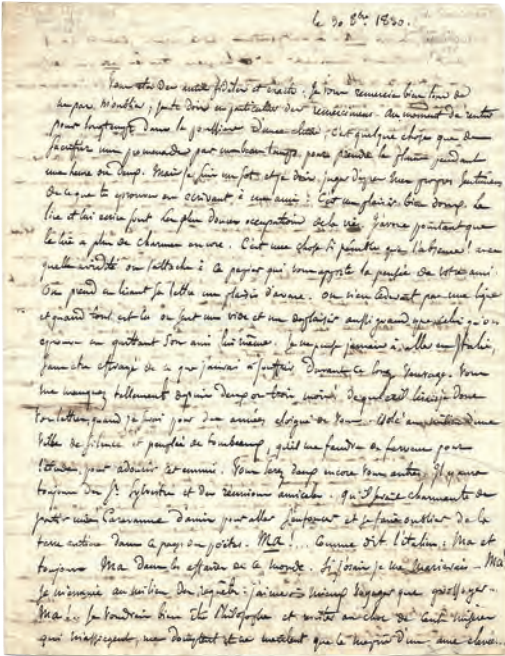 le 30 8bre 1830.
Vous êtes des amis fidèles et exacts. Je vous remercie bien tous de
Monsieur, je te dois en particulier des remerciemens. Au moment de rentrer
pour longtemps dans la poussière d'une classe, c'est quelque chose que de
sacrifier une promenade par un beau temps, pour prendre la plume pendant
une heure ou deux. Mais je suis un sot, et je dois juger d'après mes propres sentimens
de ce que tu éprouves en écrivant à un ami : C'est un plaisir bien doux. Le
lire et lui écrire sont les plus douces occupations de la vie. J'avoue pourtant que
le lire a plus de charmes encore. C'est une chose si pénible que l'absence ! avec
quelle avidité on s'attache à ce papier qui vous apporte la pensée de votre ami.
On prend en lisant sa lettre un plaisir d'avare. On
et quand tout est lu on sent un vide et un déplaisir aussi grand que celui qu'on
éprouve en quittant son ami lui même. Si je pense jamais à aller en Italie,
je suis effrayé de ce que j'aurais à souffrir durant ce long veuvage. Vous
me manquez tellement depuis deux ou trois mois. De quel œil lirais-je donc
vos lettres, quand je serai pour des années éloigné de vous. Isolé au milieu d'une
ville de silence et peuplée de tombeaux, qu'il me faudra de ferveur pour
l'étude, pour adoucir cet ennui. Vous serez deux encore vous autres, il y aura
toujours des St. Sylvestre et des réunions amicales. Qu'il serait charmant de
partir une caravanne d'amis pour aller s'enfoncer et se faire oublier de la
terre entière dans le pays des poètes. Ma !... Comme dit l'italien : Ma et
toujours Ma dans les affaires de ce monde. Si j'osais je me marierais — Ma !
Je m'ennuie au milieu des regrets : j'aimerais mieux voyager que
Ma !.. Je voudrais bien être Philosophe et
qui m'assiègent, me domptent et ne méritent que le mépris d'une âme élevée...